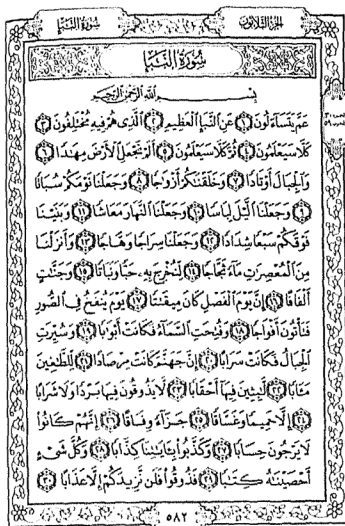 سورة النبإ الجزء الثلاثون
سُورَةُ النَّبَإِ
بِسْمِ اللَّهِ الرَّحْمَٰنِ الرَّحِيمِ
عَمَّ يَتَسَاءَلُونَ ١ عَنِ النَّبَإِ الْعَظِيمِ ٢ الَّذِي هُمْ فِيهِ مُخْتَلِفُونَ ٣
كَلَّا سَيَعْلَمُونَ ٤ ثُمَّ كَلَّا سَيَعْلَمُونَ ٥ أَلَمْ نَجْعَلِ الْأَرْضَ مِهَٰدًا ٦
وَالْجِبَالَ أَوْتَادًا ٧ وَخَلَقْنَٰكُمْ أَزْوَٰجًا ٨ وَجَعَلْنَا نَوْمَكُمْ سُبَاتًا
٩ وَجَعَلْنَا الَّيْلَ لِبَاسًا ١٠ وَجَعَلْنَا النَّهَارَ مَعَاشًا ١١ وَبَنَيْنَا
فَوْقَكُمْ سَبْعًا شِدَادًا ١٢ وَجَعَلْنَا سِرَاجًا وَهَّاجًا ١٣ وَأَنزَلْنَا
مِنَ الْمُعْصِرَٰتِ مَاءً ثَجَّاجًا ١٤ لِّنُخْرِجَ بِهِ حَبًّا وَنَبَاتًا ١٥ وَجَنَّٰتٍ
أَلْفَافًا ١٦ إِنَّ يَوْمَ الْفَصْلِ كَانَ مِيقَٰتًا ١٧ يَوْمَ يُنفَخُ فِي الصُّورِ
فَتَأْتُونَ أَفْوَاجًا ١٨ وَفُتِحَتِ السَّمَاءُ فَكَانَتْ أَبْوَٰبًا ١٩ وَسُيِّرَتِ
الْجِبَالُ فَكَانَتْ سَرَابًا ٢٠ إِنَّ جَهَنَّمَ كَانَتْ مِرْصَادًا ٢١ لِّلطَّٰغِينَ
مَـَٔابًا ٢٢ لَّٰبِثِينَ فِيهَا أَحْقَابًا ٢٣ لَّا يَذُوقُونَ فِيهَا بَرْدًا وَلَا شَرَابًا
٢٤ إِلَّا حَمِيمًا وَغَسَّاقًا ٢٥ جَزَاءً وِفَاقًا ٢٦ إِنَّهُمْ كَانُوا
لَا يَرْجُونَ حِسَابًا ٢٧ وَكَذَّبُوا بِـَٔايَٰتِنَا كِذَّابًا ٢٨ وَكُلَّ شَيْءٍ
أَحْصَيْنَٰهُ كِتَٰبًا ٢٩ فَذُوقُوا فَلَن نَّزِيدَكُمْ إِلَّا عَذَابًا ٣٠
٥٨٢